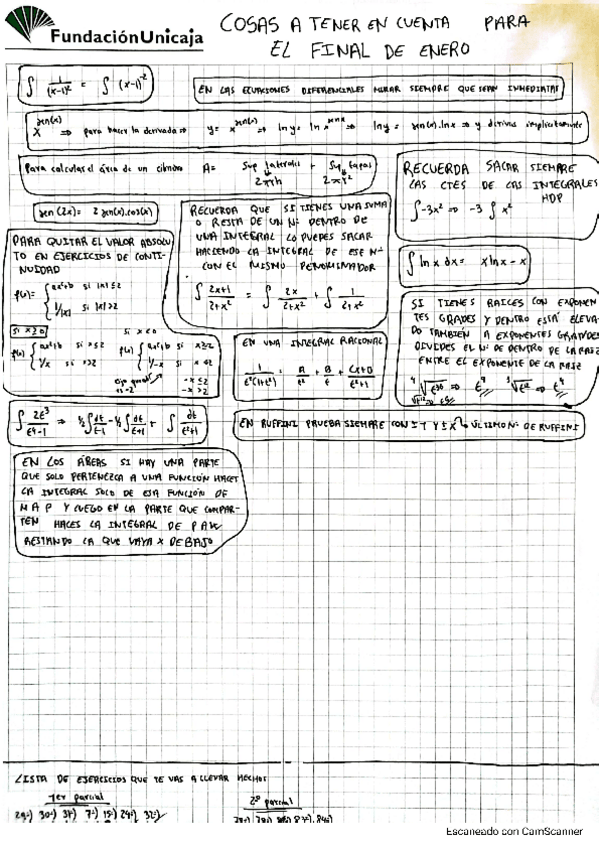 FundaciónUnicaja
COSAS A TENER EN CUENTA PARA
EL FINAL DE ENERO
∫ 1/(x-1)² = ∫ (x-1)⁻²
EN LAS ECUACIONES DIFERENCIALES MIRAR SIEMPRE QUE SEAN INMEDIATAS
x^sen(x) ⇒ para hacer la derivada ⇒ y = x^sen(x) ⇒ ln y = ln x^senx ⇒ ln y = sen(x).ln x ⇒ y derivas implícitamente
Para calcular el área de un cilindro A = Sup laterales + Sup tapas
2πrh 2πr²
RECUERDA SACAR SIEMPRE
LAS CTES DE LAS INTEGRALES
HDP
∫-3x² ⇒ -3 ∫x²
sen(2x) = 2 sen(x).cos(x)
RECUERDA QUE SI TIENES UNA SUMA
O RESTA DE UN Nº DENTRO DE
UNA INTEGRAL LO PUEDES SACAR
HACIENDO LA INTEGRAL DE ESE Nº
CON EL MISMO DENOMINADOR
∫ (2x+1)/(2+x²) = ∫ 2x/(2+x²) + ∫ 1/(2+x²)
PARA QUITAR EL VALOR ABSOLU-
TO EN EJERCICIOS DE CONTI-
NUIDAD
f(x) = { ax²+b si |x| ≤ 2
1/|x| si |x| > 2
si x ≥ 0 si x < 0
f(x) { ax²+b si x ≤ 2 f(x) { ax²+b si x ≥ -2
1/x si x > 2 1/-x si
-x ≤ 2
-x > 2
∫ ln x dx = x ln x - x
SI TIENES RAICES CON EXPONEN
TES GRADES Y DENTRO ESTÁ ELEVA-
DO TAMBIEN A EXPONENTES GRANDES
DIVIDES EL Nº DE DENTRO DE LA RAIZ
ENTRE EL EXPONENTE DE LA RAIZ
EN UNA INTEGRAL RACIONAL
1/(t²(1+t²)) = A/t² + B/t + (Cx+D)/(t²+1)
∫ 2t³/(t⁴-1) ⇒ ½∫dt/(t-1) - ½∫dt/(t+1) + ∫ dt/(t²+1)
EN RUFFINI PRUEBA SIEMPRE CON ±1 Y ±X ÚLTIMO Nº DE RUFFINI
EN LOS ÁREAS SI HAY UNA PARTE
QUE SOLO PERTENEZCA A UNA FUNCIÓN HACES
LA INTEGRAL SOLO DE ESA FUNCIÓN DE
M A P Y LUEGO EN LA PARTE QUE COMPAR-
TEN HACES LA INTEGRAL DE P A
RESTANDO LA QUE VAYA X DEBAJO
LISTA DE EJERCICIOS QUE TE VAS A LLEVAR HECHOS
1er parcial 2º parcial
29-) 30-) 31-) 7-) 15-) 24-) 32-)
Escaneado con CamScanner